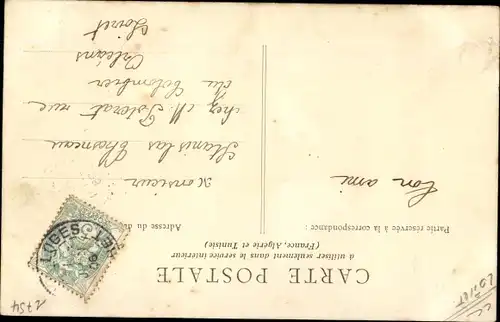 CARTE POSTALE
à utiliser seulement dans le service intérieur
(France, Algérie et Tunisie)
Partie réservée à la correspondance :
Ton ami
Adresse du de
Monsieur
Stanislas Thosneau
chez M. Foterat rue
du Colombier
Orléans
Loiret
LIGES
06
1754
Loiret